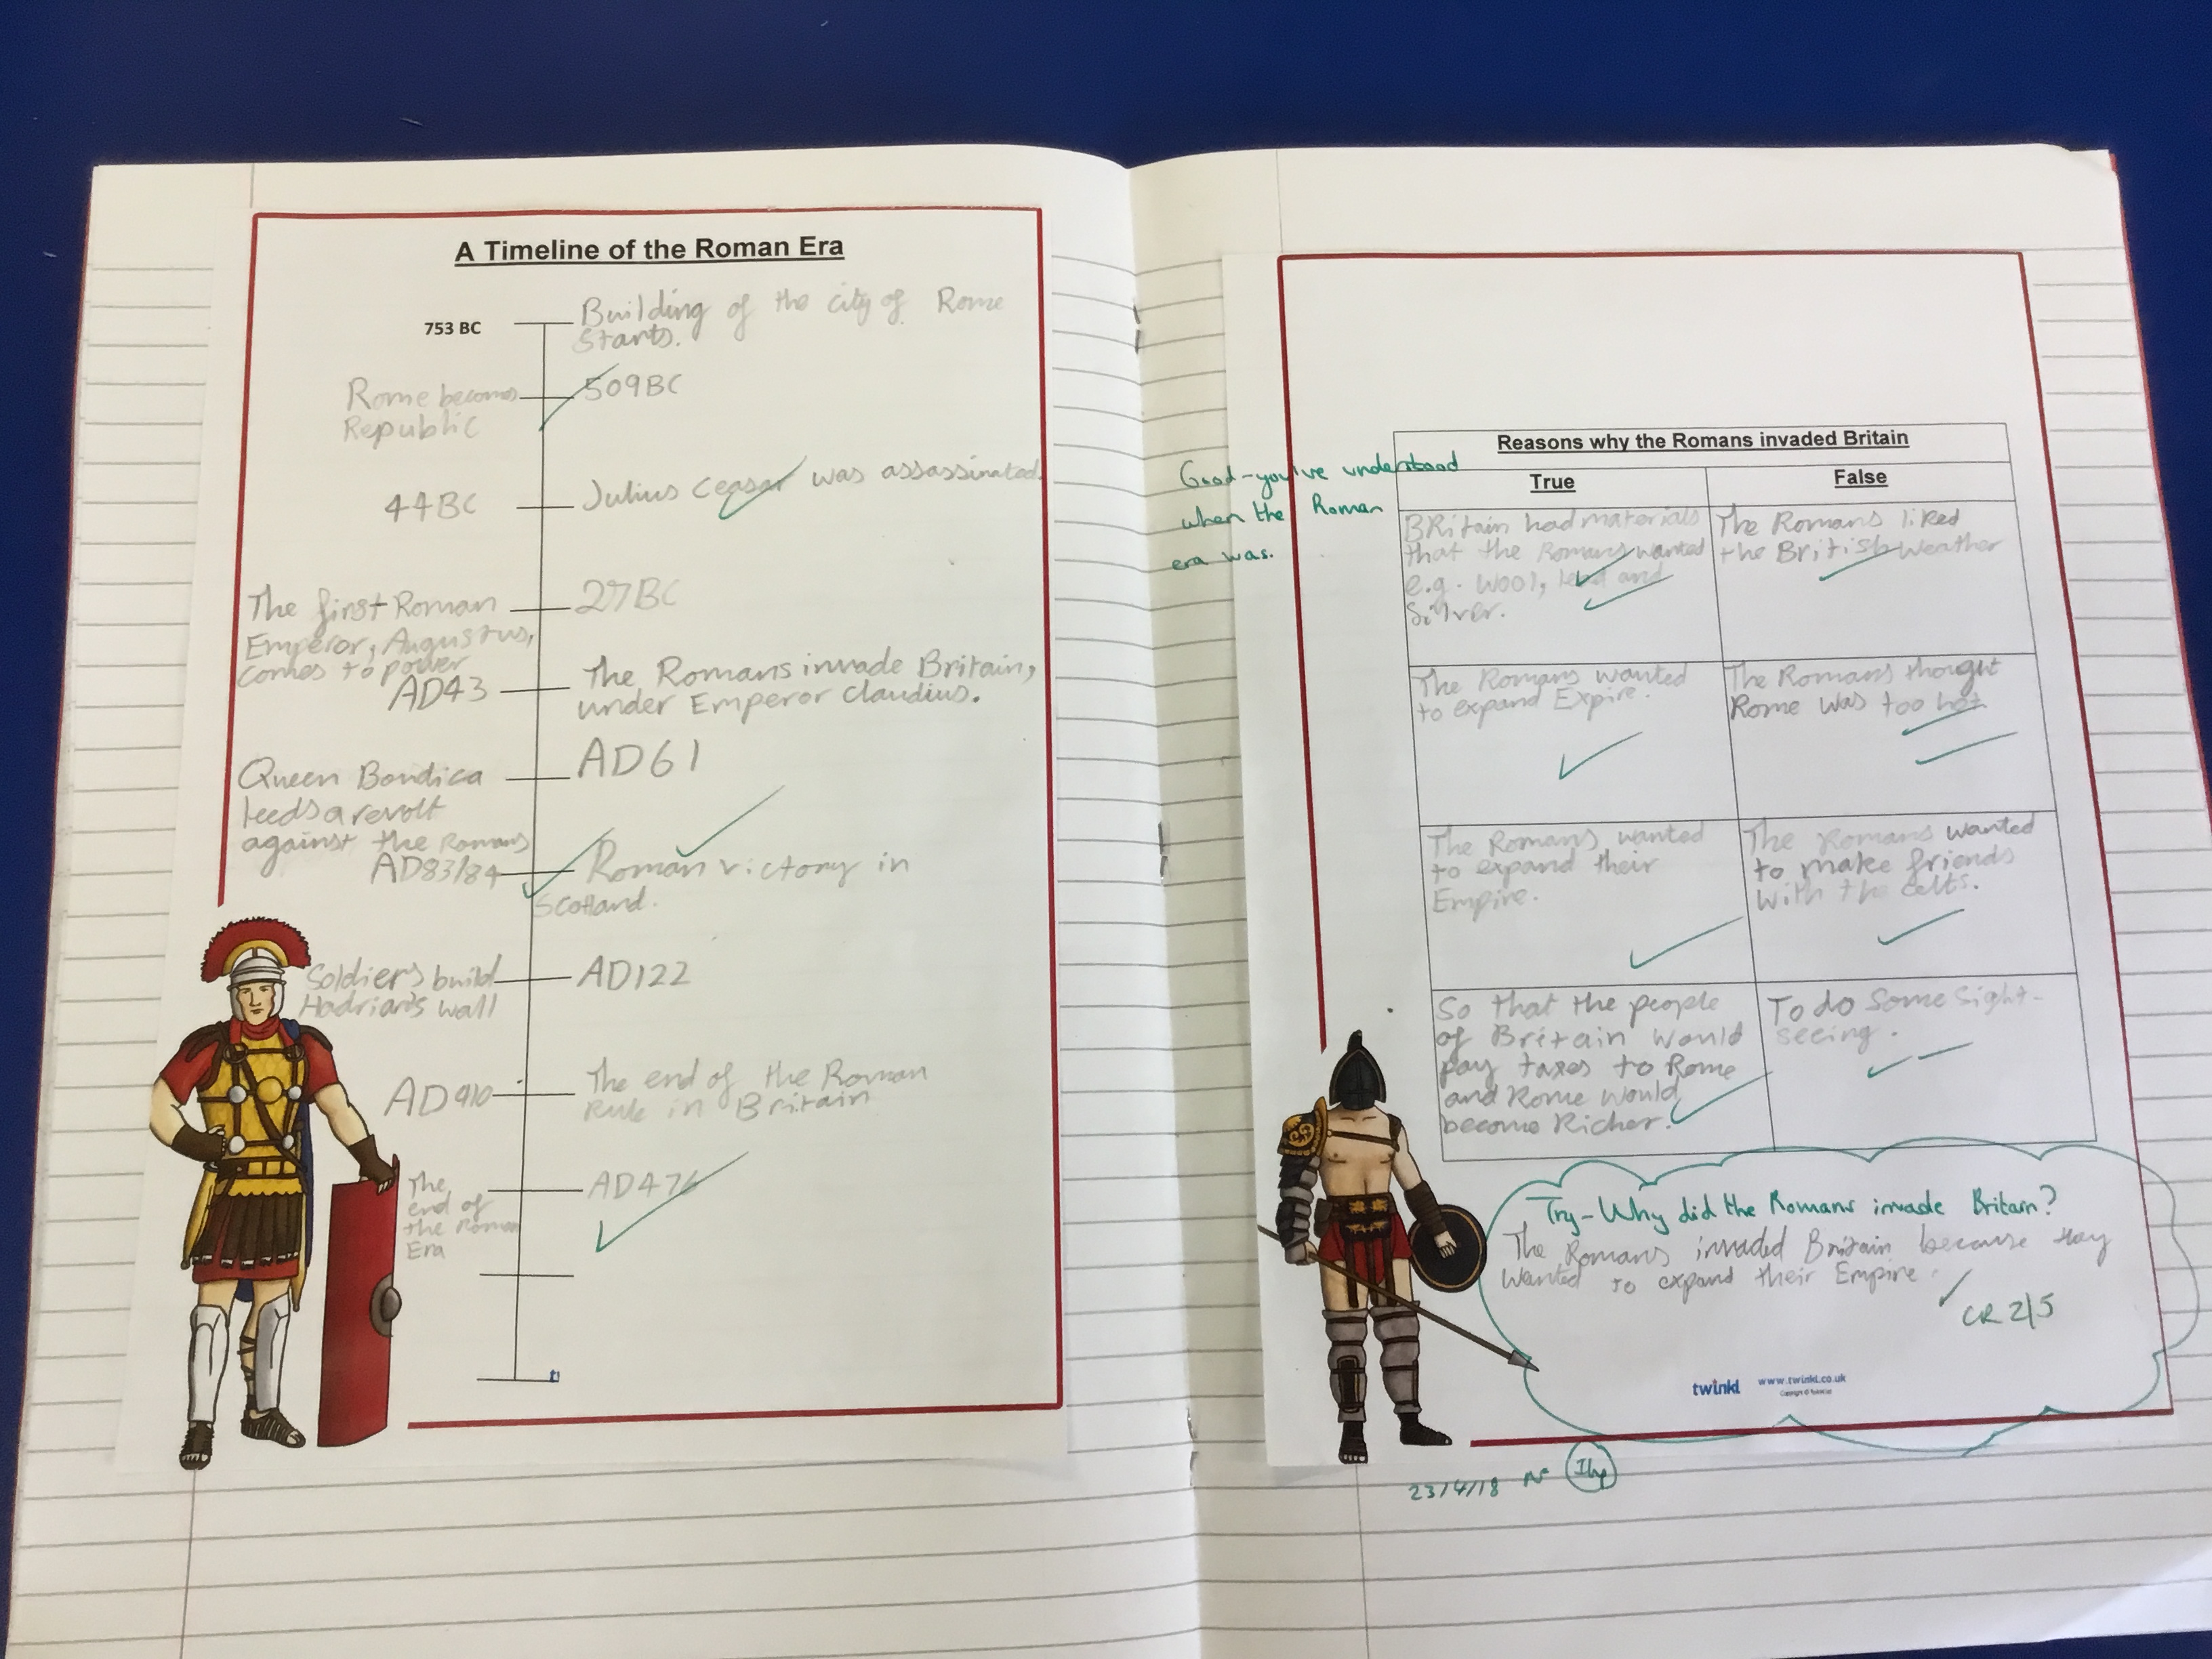 A Timeline of the Roman Era
753 BC
Building of the city of Rome
Starts.
Rome becomes
Republic
509BC
44BC
Julius Ceasar was assassinated.
The first Roman
Emperor, Augustus,
comes to power
27BC
AD43
The Romans invade Britain,
under Emperor Claudius.
Queen Boudica
leeds a revolt
against the Romans
AD61
AD83/84
Roman victory in
Scotland.
Soldiers build
Hadrian's wall
AD122
AD410
The end of the Roman
Rule in Britain
The
end of
the Roman
Era
AD476
Good - you've understood
when the Roman
era was.
Reasons why the Romans invaded Britain
True
False
BRitain had materials
that the Romans wanted
e.g. wool, lead and
Silver.
The Romans liked
the British weather
The Romans wanted
to expand Expire.
The Romans thought
Rome was too hot
The Romans wanted
to expand their
Empire.
The Romans wanted
to make friends
with the celts.
So that the people
of Britain would
pay taxes to Rome
and Rome would
become Richer.
To do some Sight-
seeing.
Try - Why did the Romans invade Britain?
The Romans invaded Britain because they
wanted to expand their Empire.
CR 2/5
twinkl www.twinkl.co.uk
23/4/18